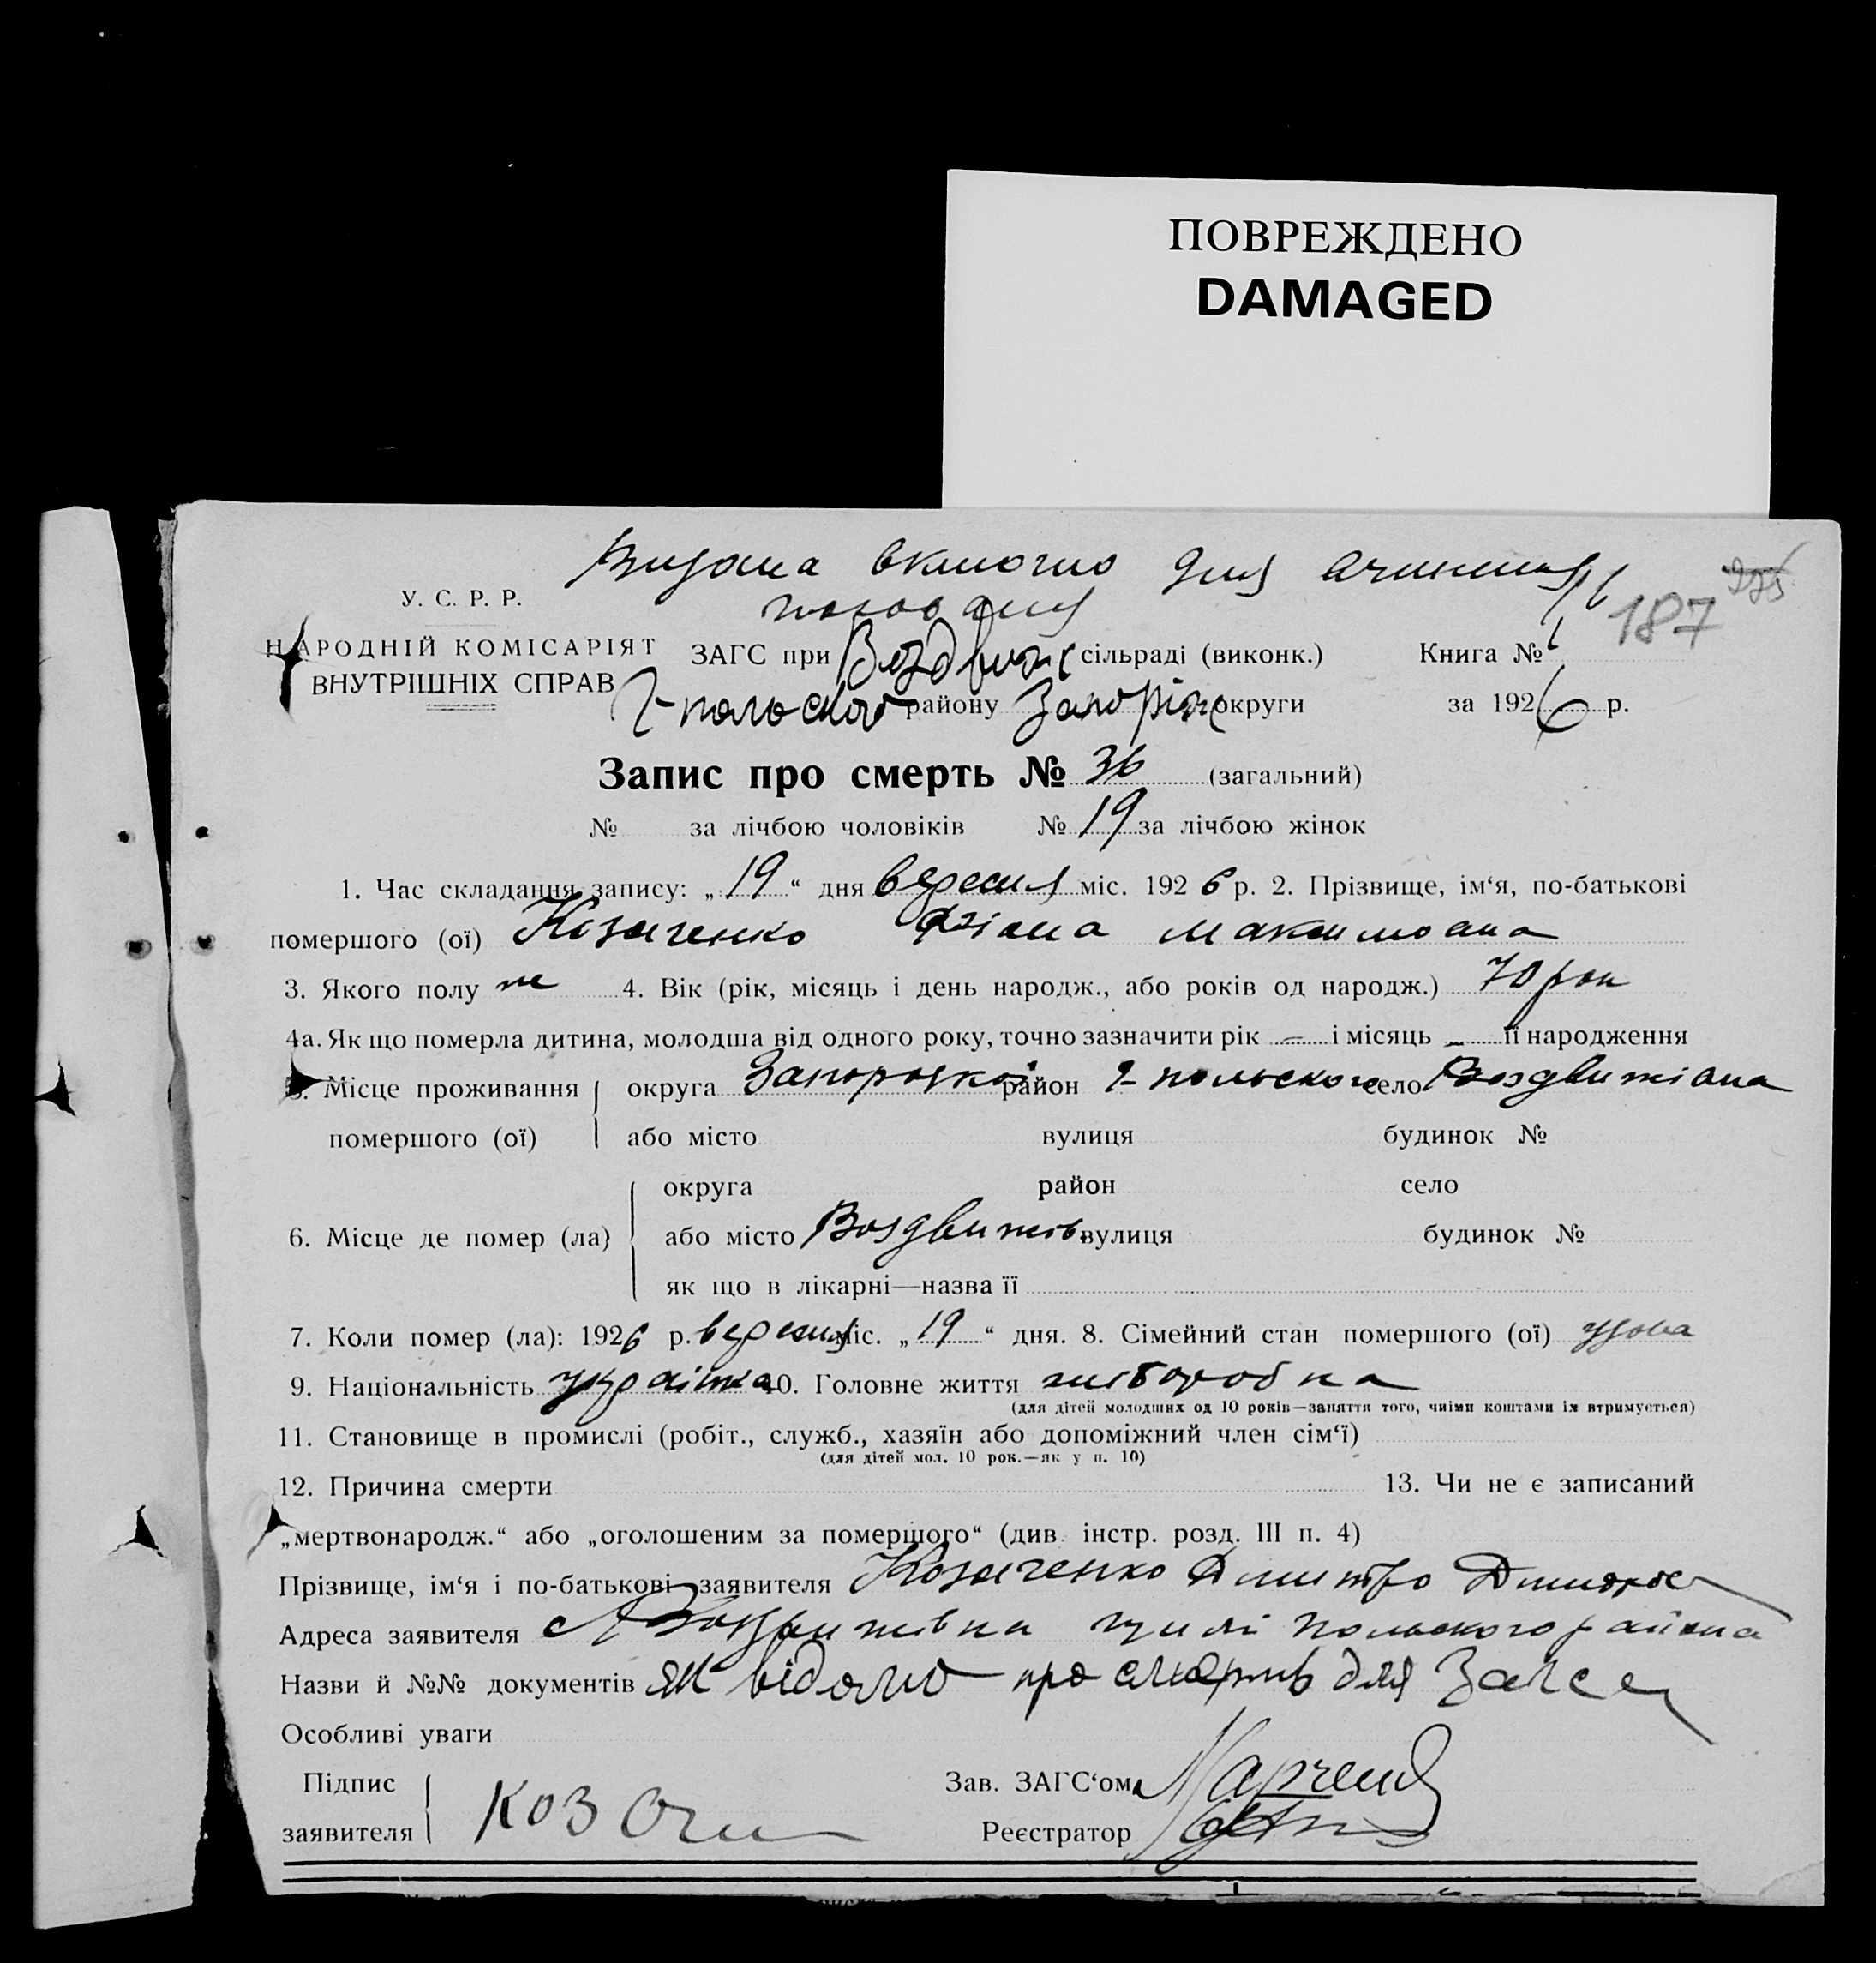 ПОВРЕЖДЕНО
DAMAGED
Видана включно для
187
У. С. Р. Р.
НАРОДНІЙ КОМІСАРІЯТ
ВНУТРІШНІХ СПРАВ
ЗАГС при Воздвиж сільраді (виконк.) Книга № 1
Г-польского району Запоріж округи за 1926 р.
Запис про смерть № 36 (загальний)
№ за лічбою чоловіків № 19 за лічбою жінок
1. Час складання запису: „19“ дня вересня міс. 1926 р. 2. Прізвище, ім‘я, по-батькові
помершого (ої) Козаченко Максимовна
3. Якого полу ж 4. Вік (рік, місяць і день народж., або років од народж.) 70 рок
4а. Як що померла дитина, молодша від одного року, точно зазначити рік – і місяць – її народження
5. Місце проживання округа район Г-польского село
помершого (ої) або місто вулиця будинок №
округа район село
6. Місце де помер (ла) або місто Воздвижів. вулиця будинок №
як що в лікарні—назва її
7. Коли помер (ла): 1926 р. вересня міс. „19“ дня. 8. Сімейний стан помершого (ої) удова
9. Національність українка 10. Головне життя хлібороб ка
(для дітей молодших од 10 років—заняття того, чиїми коштами їх втримується)
11. Становище в промислі (робіт., служб., хазяїн або допоміжний член сім‘ї)
(для дітей мол. 10 рок.—як у п. 10)
12. Причина смерти 13. Чи не є записаний
„мертвонародж.“ або „оголошеним за помершого“ (див. інстр. розд. III п. 4)
Прізвище, ім‘я і по-батькові заявителя Козаченко Дмитро
Адреса заявителя с Воздвижівка Гуляй Польского района
Назви й №№ документів як відомо про смерть для Загса
Особливі уваги
Підпис Зав. ЗАГС‘ом
заявителя Козачен Реєстратор